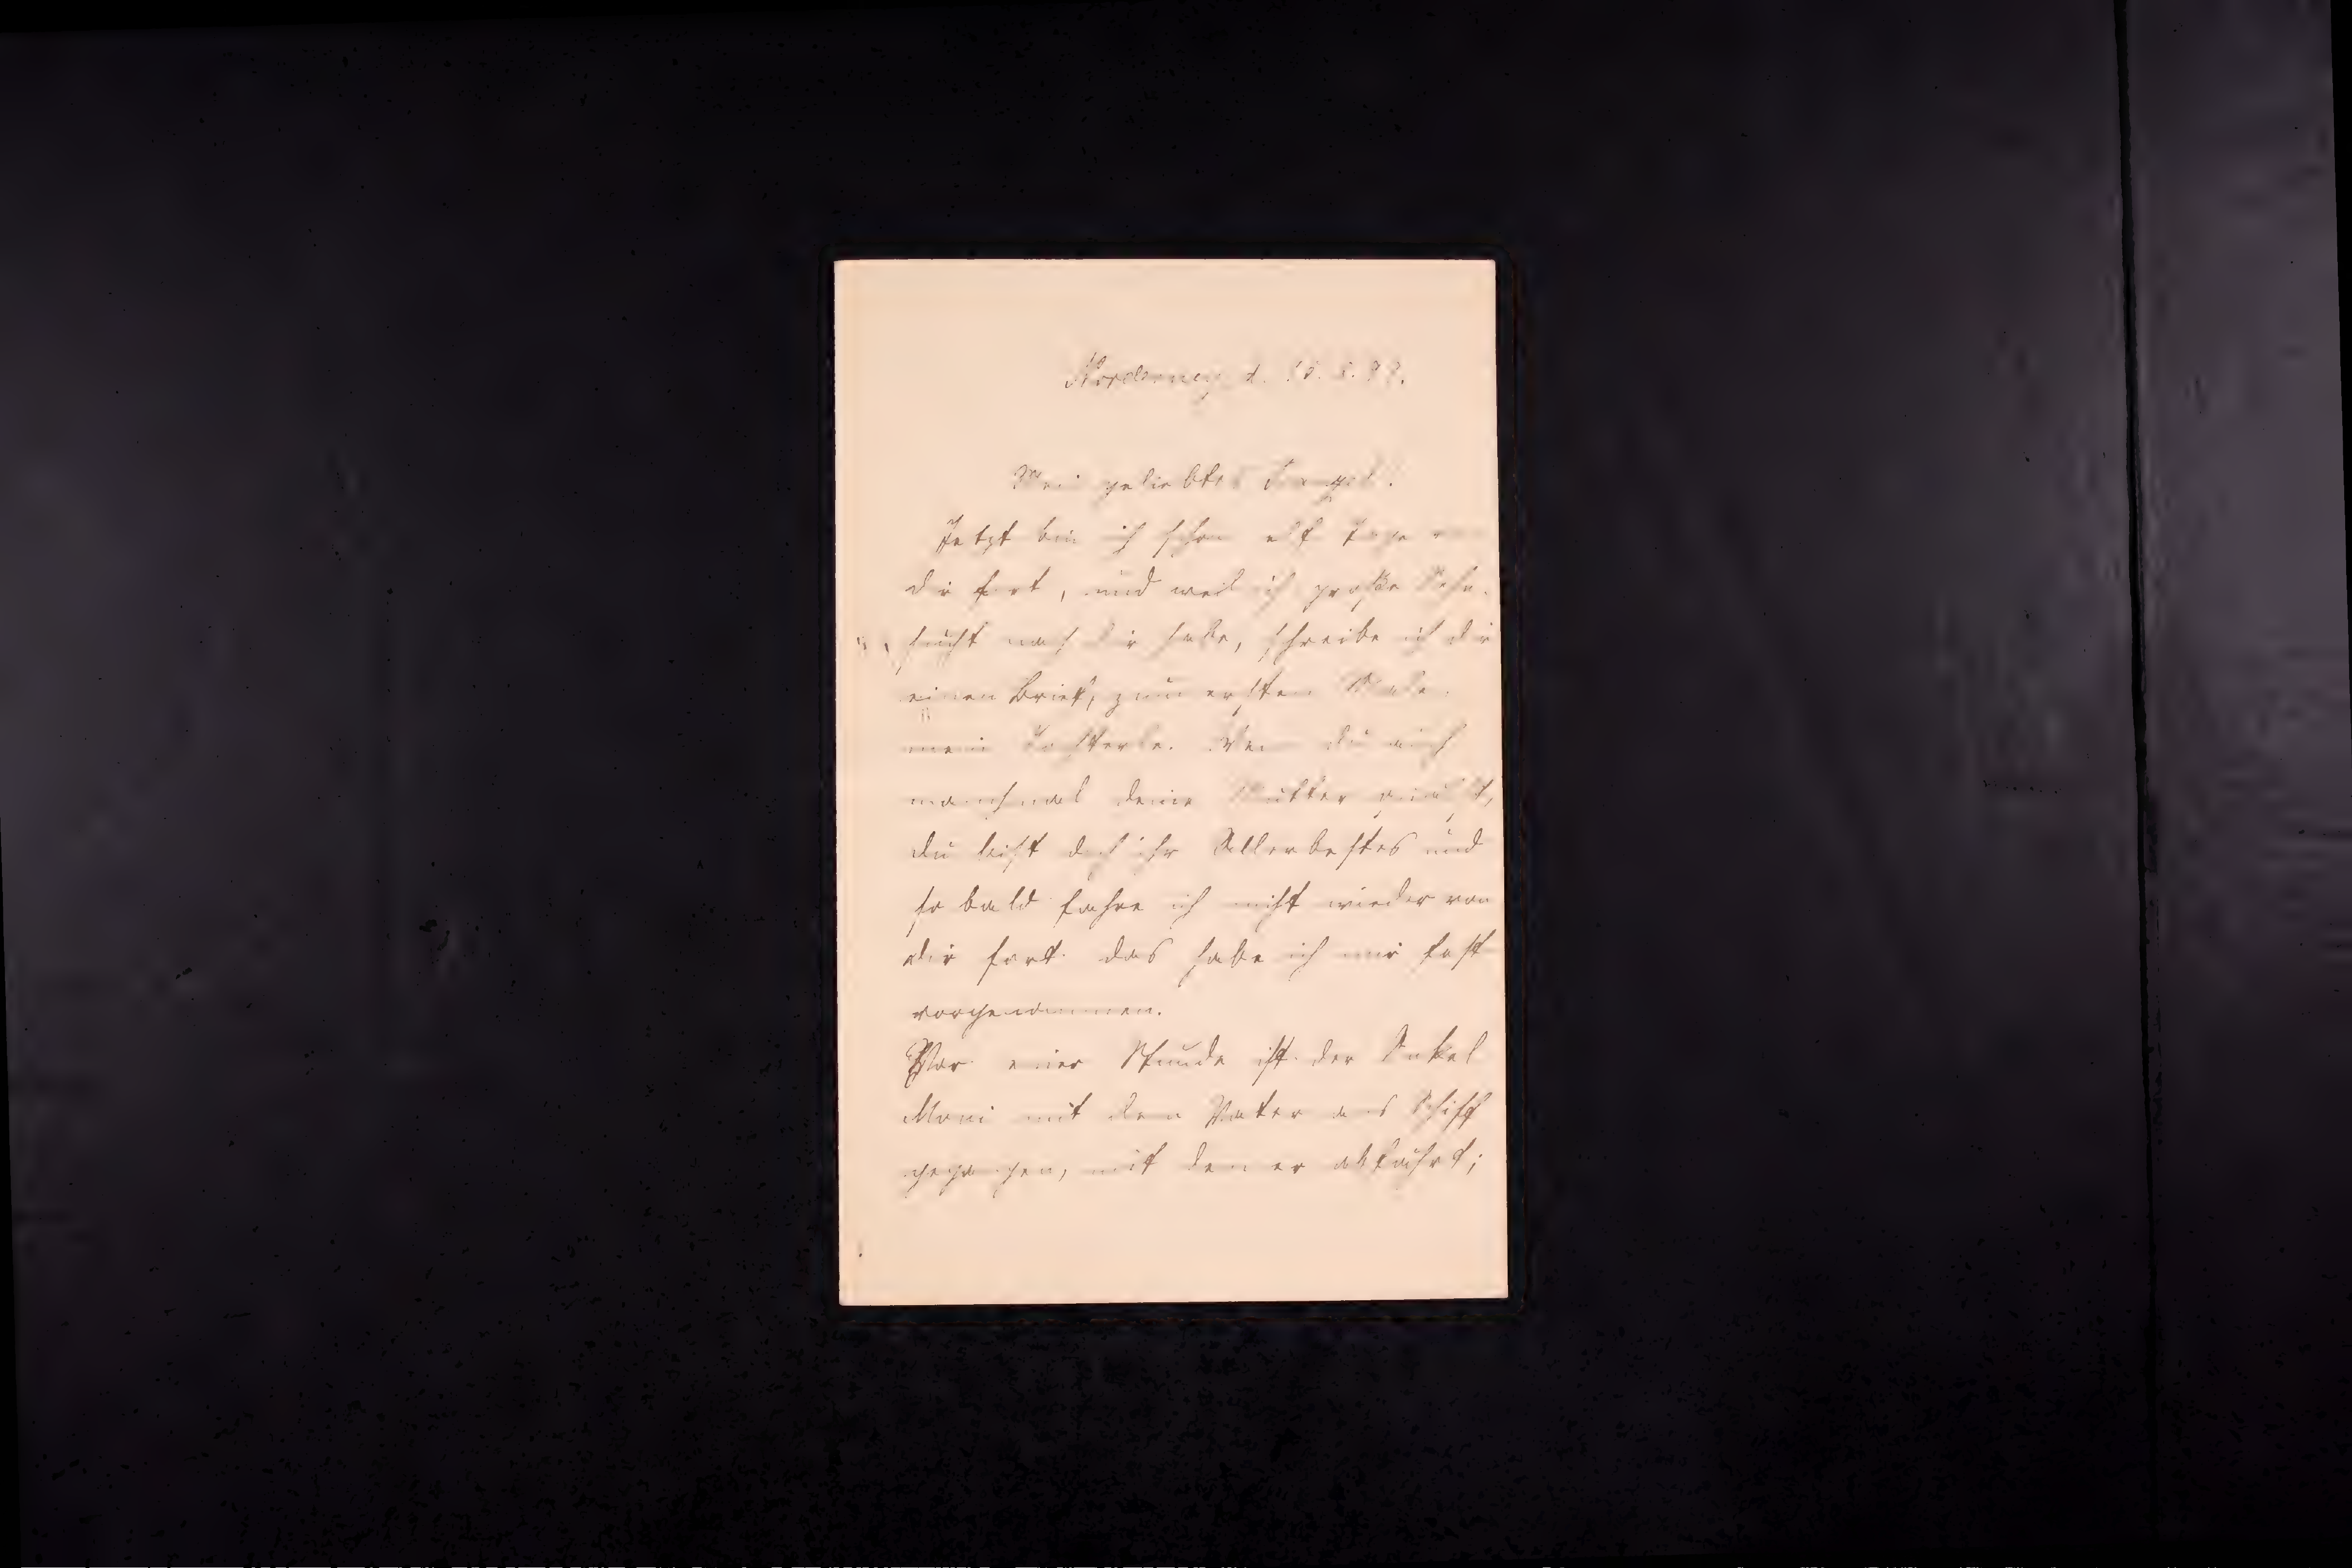 Norderney, d.
Mein geliebtes
Jetzt bin ich schon elf Tage von
dir fort, und weil ich große Sehn-
sucht nach Dir habe, schreibe ich dir
einen Brief, zum ersten Male,
mein Tochterle. Wenn du auch
manchmal deine Mutter quälst,
du bist doch ihr Allerbestes und
so bald fahre ich nicht wieder von
dir fort. das habe ich mir fest
vorgenommen.
Vor einer Stunde ist der Onkel
Moni mit dem Vater ans Schiff
gegangen, mit dem er abfährt;